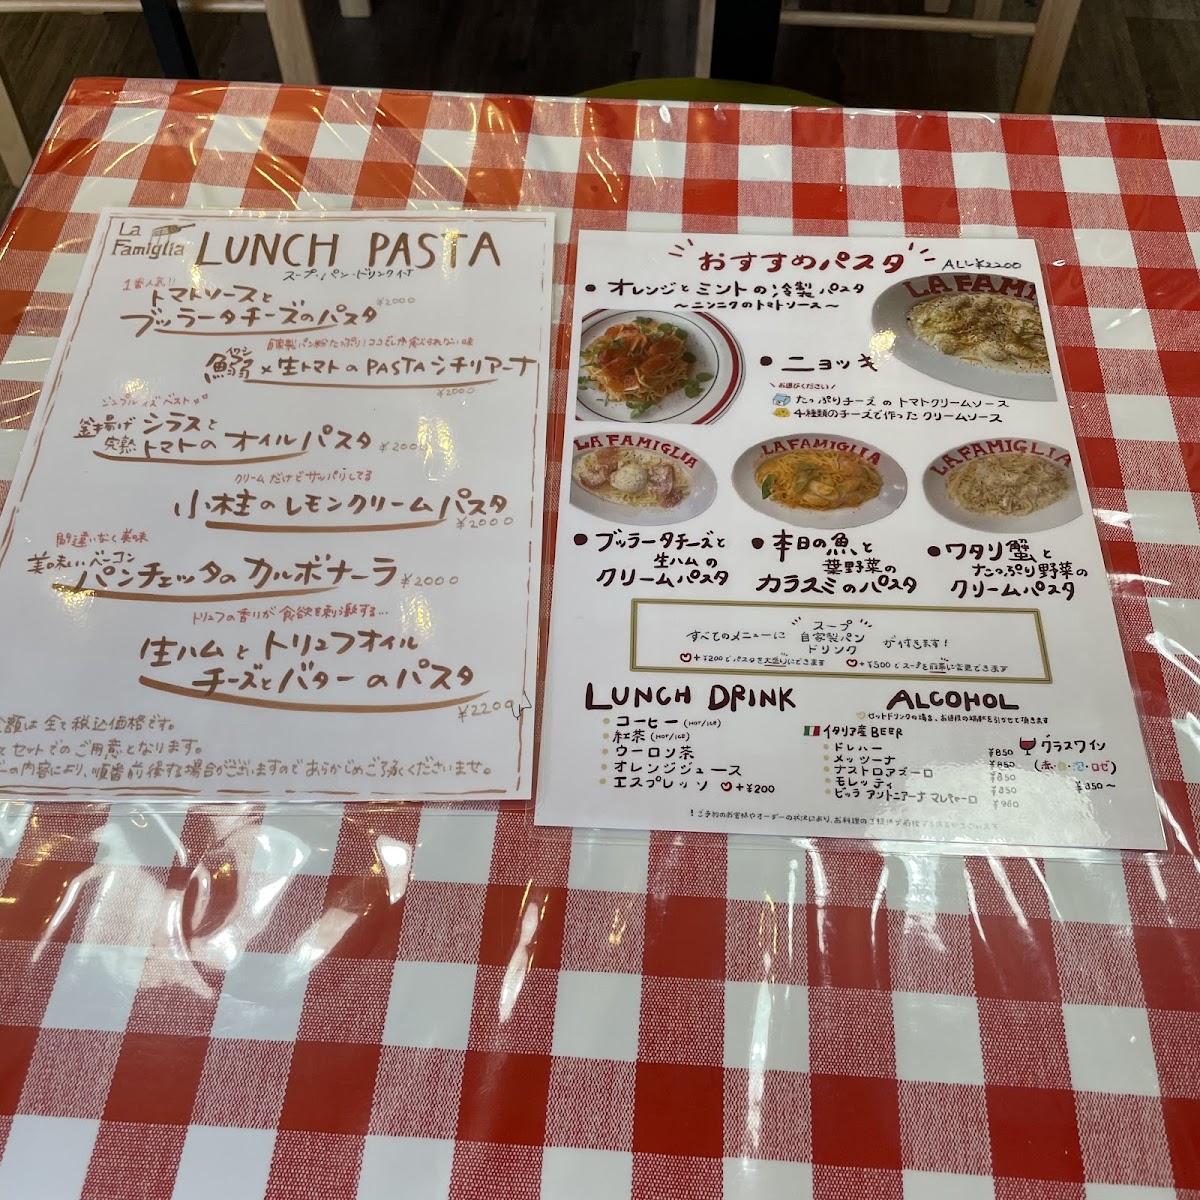 La
Famiglia
LUNCH PASTA
スープ・パン・ドリンク付
1番人気!!
トマトソースと
ブッラータチーズのパスタ
¥2000
自家製パン粉たっぷり!ココでしか食べられない味
イワシ
鰯×生トマトのPASTAシチリアーナ
¥2000
シンプルイズベスト
釜揚げシラスと
完熟トマトのオイルパスタ
¥2000
クリームだけどサッパリしてる
小柱のレモンクリームパスタ
¥2000
間違いなく美味
美味しいベーコン
パンチェッタのカルボナーラ
¥2000
トリュフの香りが食欲を刺激する…
生ハムとトリュフオイル
チーズとバターのパスタ
¥2200
金額は全て税込価格です。
てセットでのご用意となります。
ーの内容により、順番前後する場合がございますのであらかじめご了承くださいませ。
おすすめパスタ
ALL¥2200
• オレンジとミントの冷製パスタ
〜ニンニクのトマトソース〜
LA FAMI
• ニョッキ
\お選びください/
たっぷりチーズのトマトクリームソース
4種類のチーズで作ったクリームソース
LA FAMIGLIA
LA FAMIGLIA
LA FAMIGLIA
• ブッラータチーズと
生ハムの
クリームパスタ
• 本日の魚と
葉野菜の
カラスミのパスタ
• ワタリ蟹と
たっぷり野菜の
クリームパスタ
すべてのメニューに
スープ
自家製パン
ドリンク
が付きます!
+¥200でパスタを大盛りにできます
+¥500でスープを前菜に変更できます
LUNCH DRINK
コーヒー(HOT/ICE)
紅茶(HOT/ICE)
ウーロン茶
オレンジジュース
エスプレッソ +¥200
ALCOHOL
セットドリンクの場合、お値段の
イタリア産BEER
ドレハー ¥850
メッツーナ ¥850
ナストロアズーロ ¥850
モレッティ ¥850
ビッラ アントニアーナ マレキャーロ ¥980
グラスワイン
(赤・白・泡・ロゼ)
¥850〜
!ご予約のお客様やオーダーの状況により、お料理の